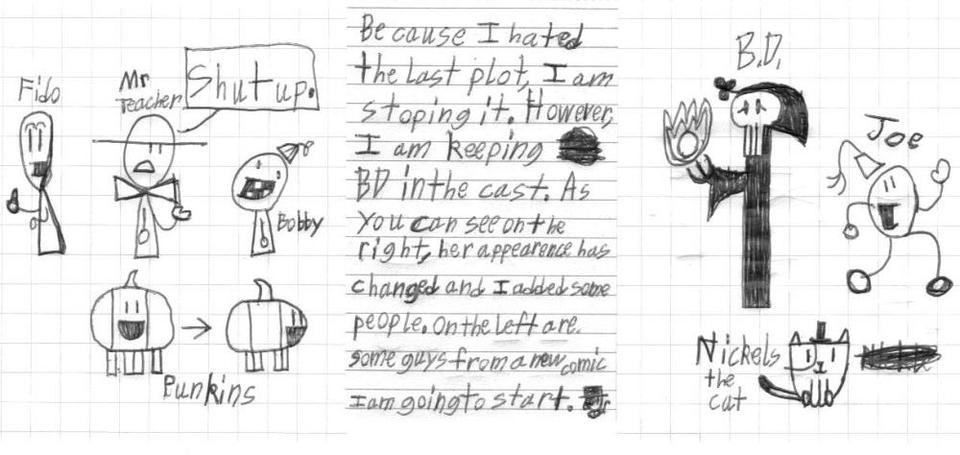 Fido
Mr
Teacher
Shut up.
Bobby
Punkins
Because I hated
the last plot, I am
stoping it. However,
I am keeping
BD in the cast. As
you can see on the
right, her appearence has
changed and I added some
people. On the left are
some guys from a new comic
I am going to start.
B.D.
Joe
Nickels
the
cat